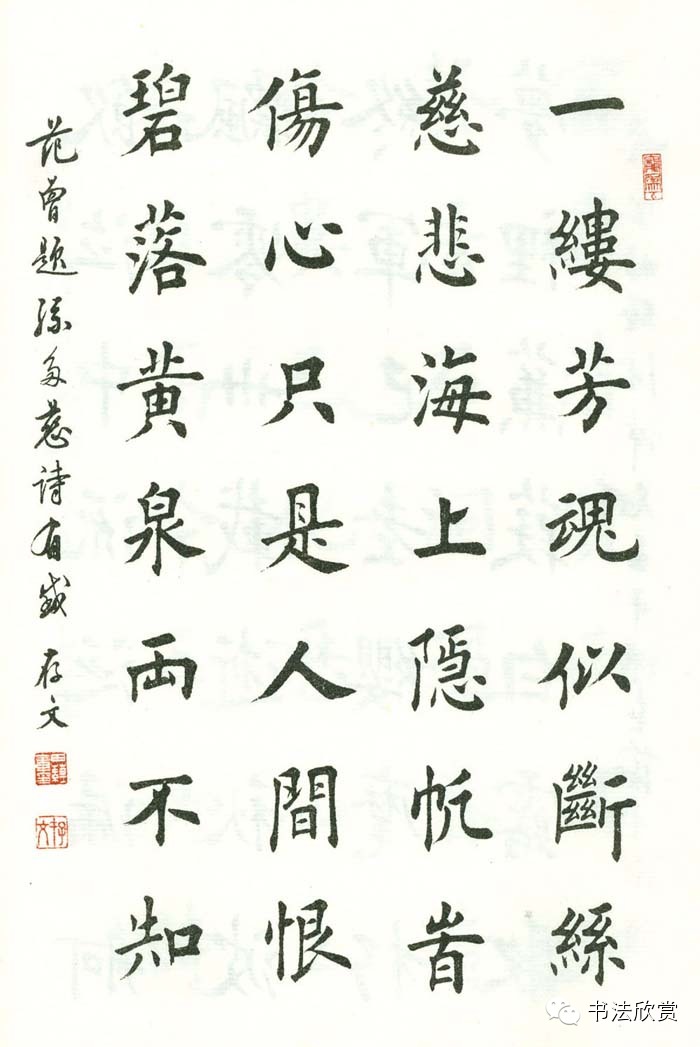 一縷芳魂似斷絲
慈悲海上隱帆旹
傷心只是人間恨
碧落黄泉両不知
范曾題孫多慈詩有感 存文
存文
书法欣赏